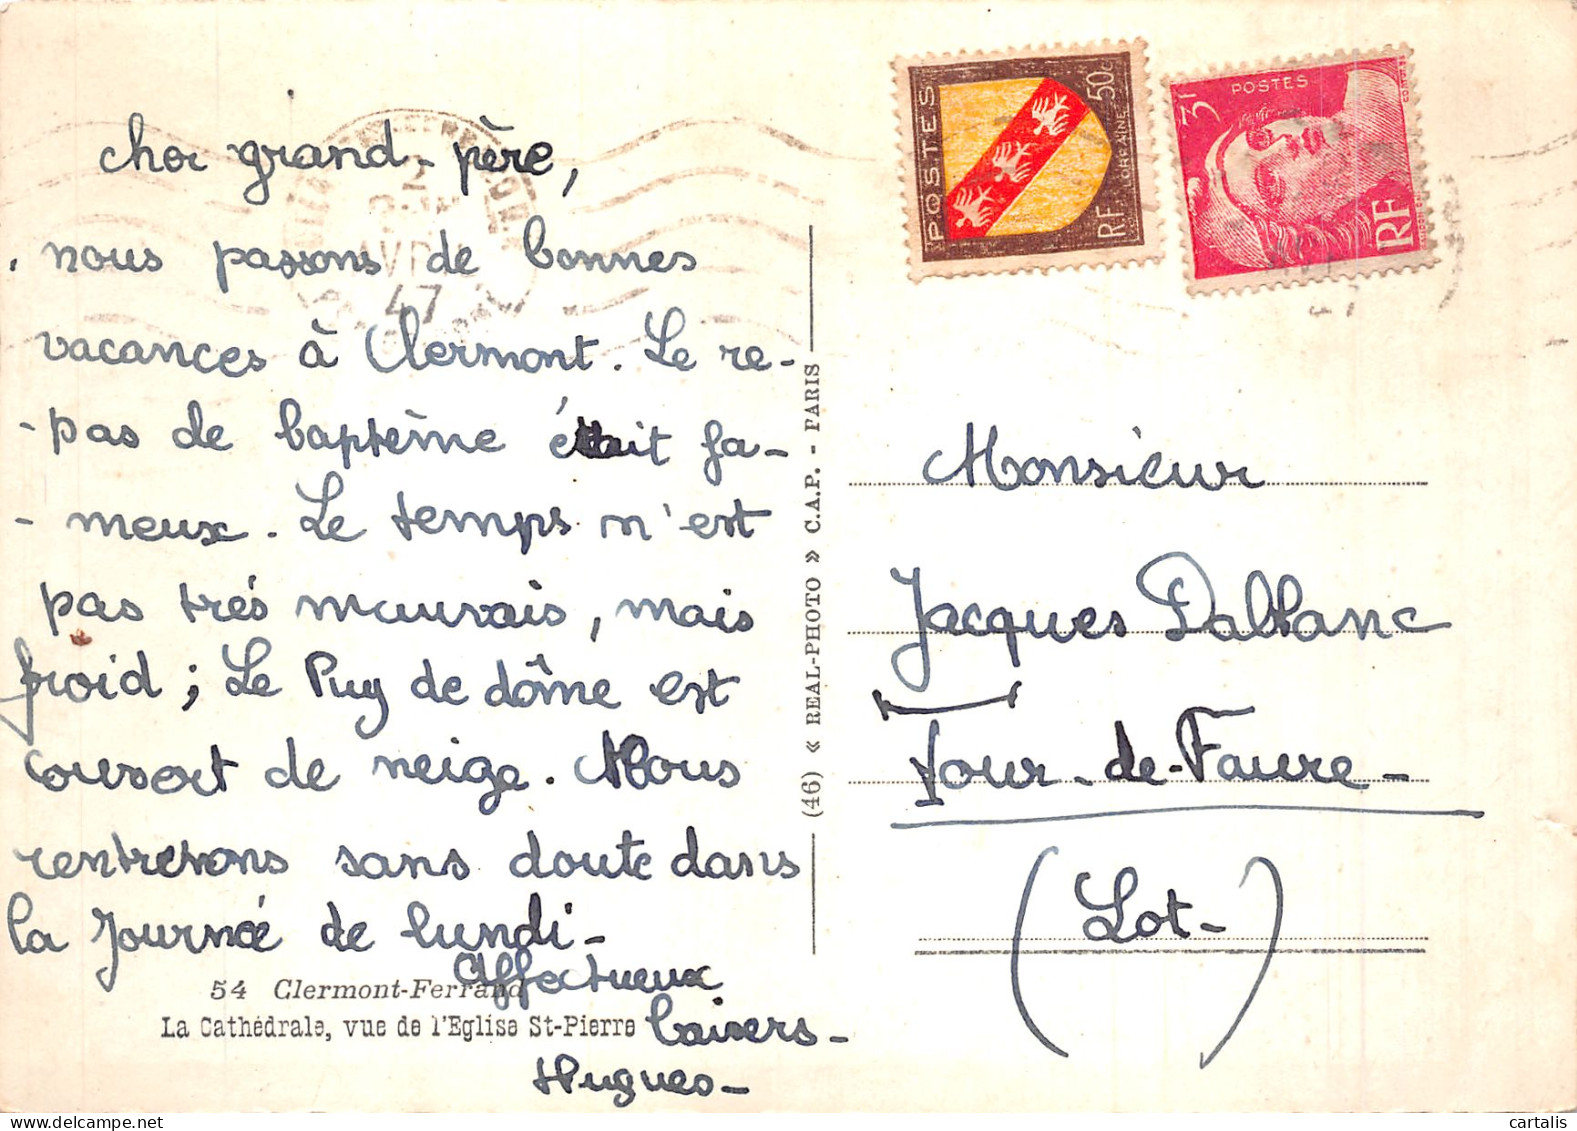 cher grand-père,
nous passons de bonnes
vacances à Clermont. Le re-
-pas de baptême était fa-
-meux. Le temps n'est
pas trés mauvais, mais
froid ; Le Puy de dôme est
couvert de neige. Nous
rentrerons sans doute dans
la journée de lundi -
affectueux
baisers -
Hugues -
54 Clermont-Ferrand
La Cathédrale, vue de l'Eglise St-Pierre
(46) « REAL-PHOTO » C.A.P. - PARIS
POSTES
50c
LORRAINE
RF
3F
POSTES
RF
AVRIL
47
Monsieur
Jacques Dalblanc
Tour-de-Faure-
(Lot-)
cartalis